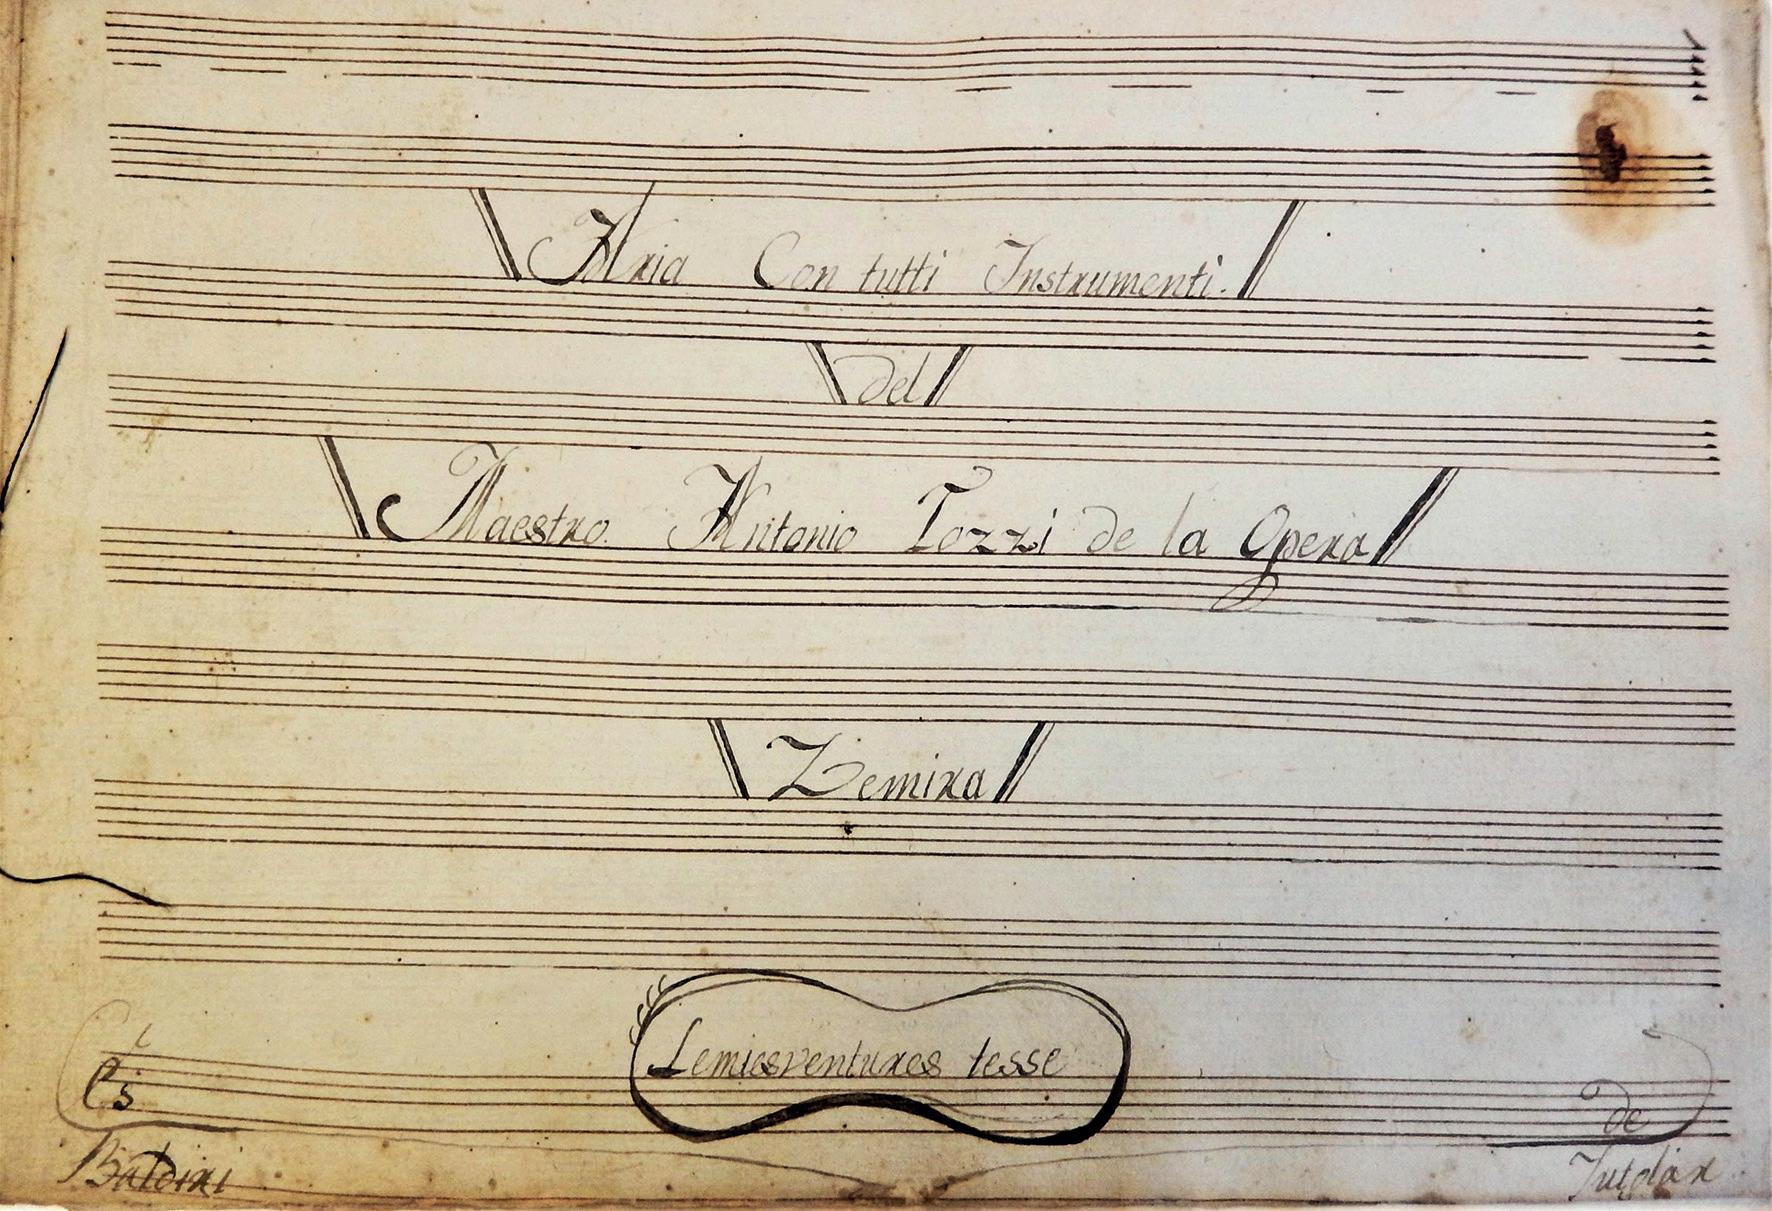 Aria Con tutti Instrumenti.
del
Maestro. Antonio Tozzi de la Opera
Zemira
Lemiesventures tesse
Es de
Baldiri Jutglar